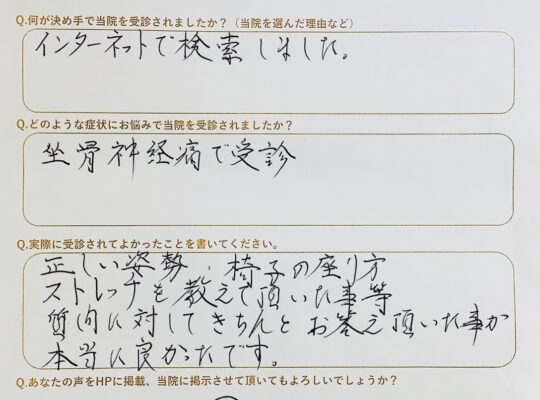 Q.何が決め手で当院を受診されましたか？（当院を選んだ理由など）
インターネットで検索しました。
Q.どのような症状にお悩みで当院を受診されましたか？
坐骨神経痛で受診
Q.実際に受診されてよかったことを書いてください。
正しい姿勢・椅子の座り方
ストレッチを教えて頂いた事等
質問に対してきちんとお答え頂いた事が
本当に良かったです。
Q.あなたの声をHPに掲載、当院に掲示させて頂いてもよろしいでしょうか？